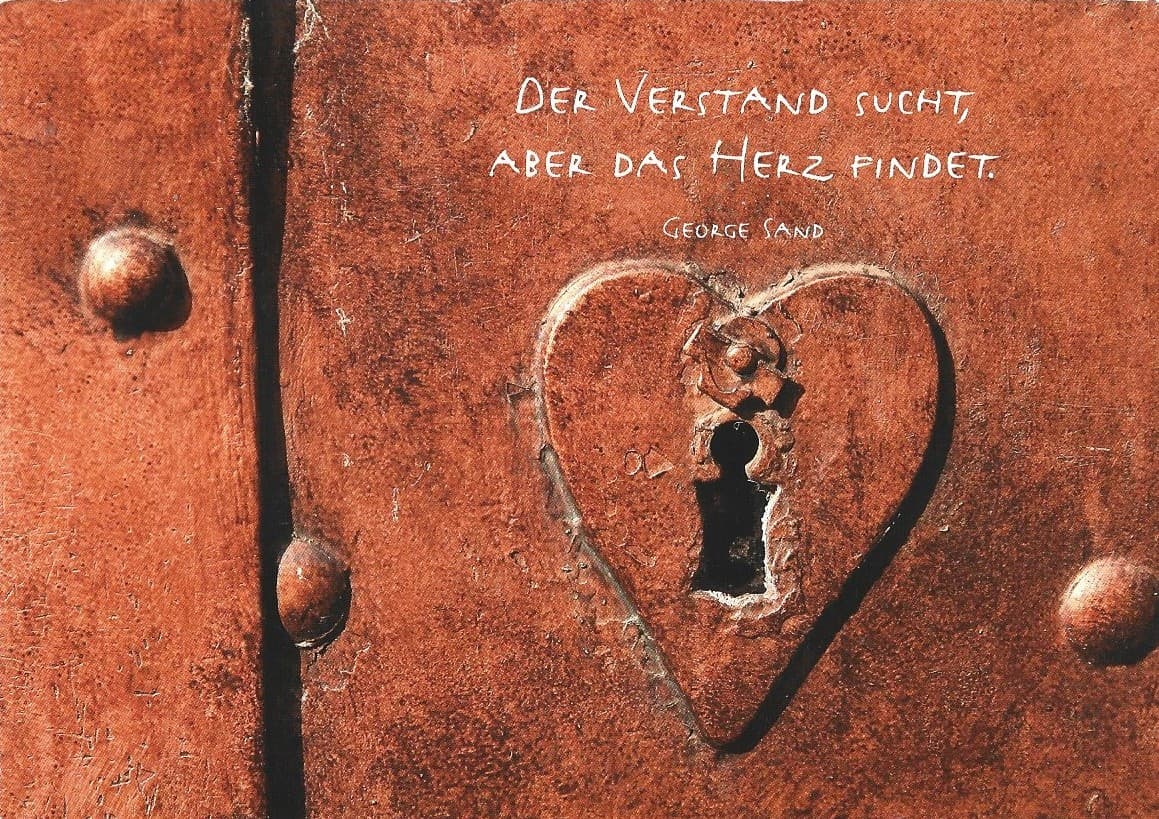 Der Verstand sucht,
aber das Herz findet.
George Sand